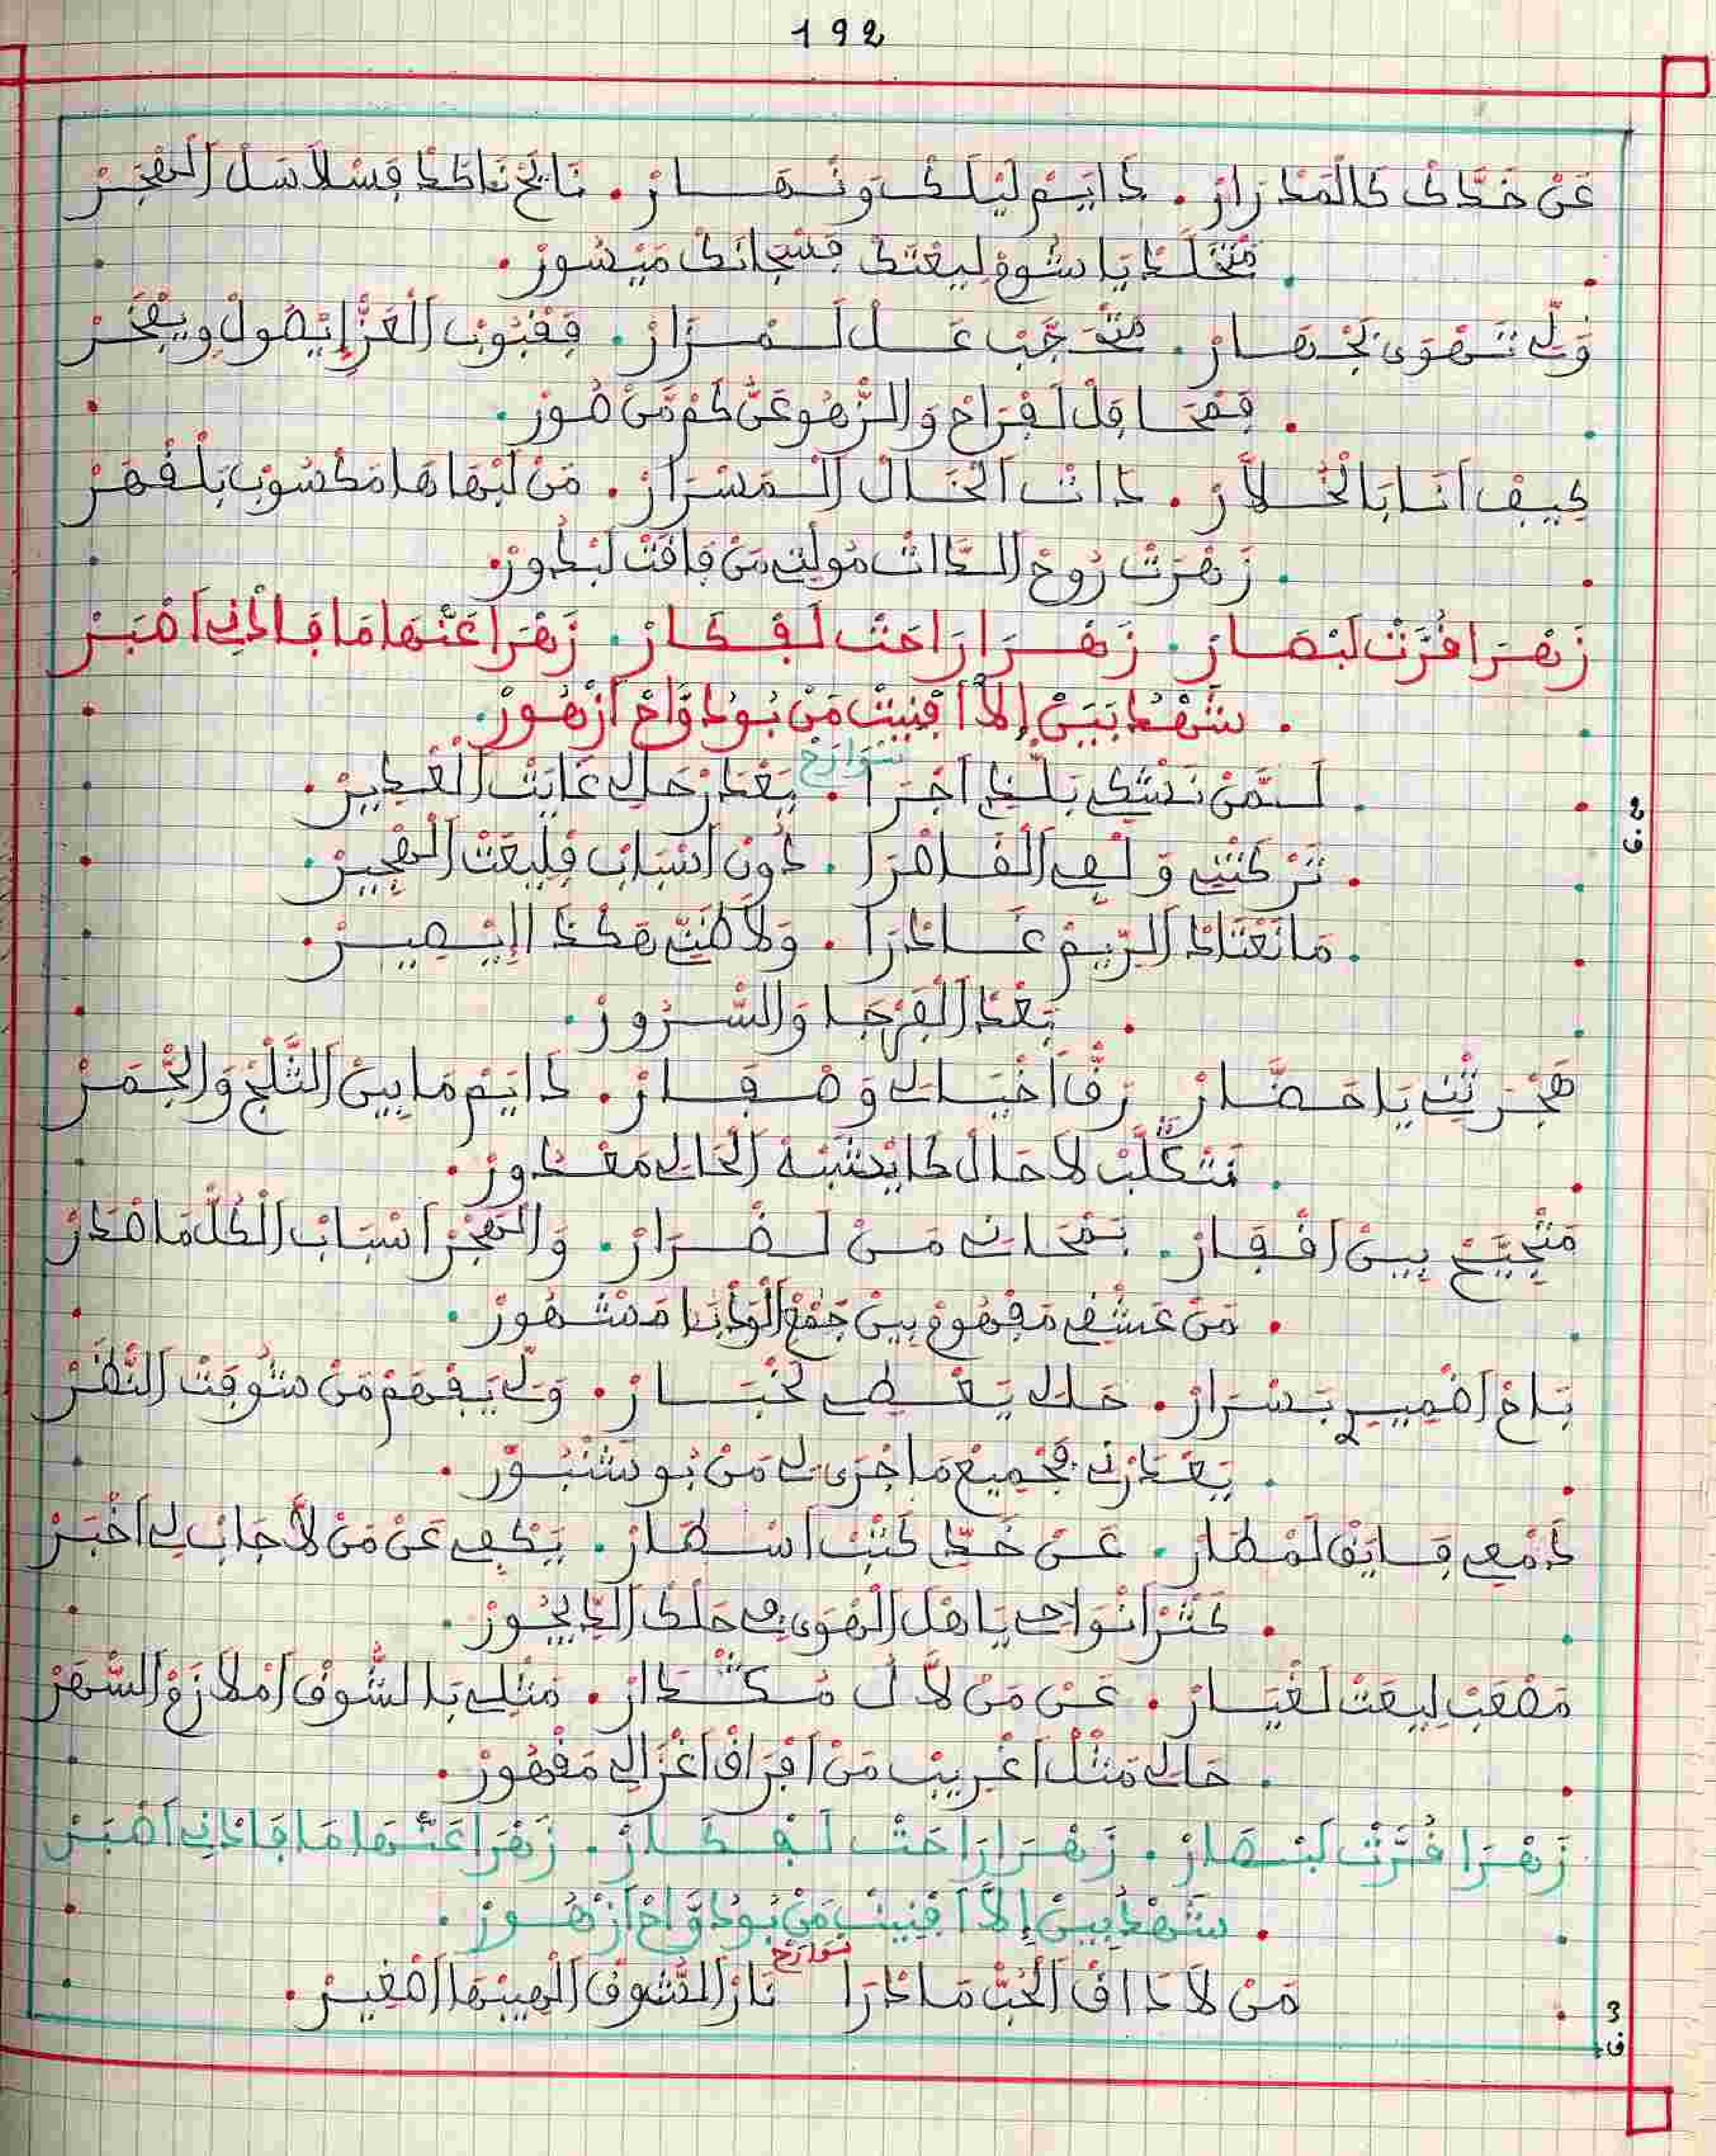 192
عَنْ خَدَّكْ كَالْمَدْرَارْ. دَايَمْ لَيْلَكْ وَنْهَارْ. نَايَحْ نَاكَدْ فَسْلَاسَلْ الْهْجَرْ
. مَنْحَلَّكْ يَا شُومْ لِيعْتَكْ فَسْجَانَكْ مَيْسُورْ.
وَلِّي تَهْوَى بَجْهَارْ. مَتْحَجَّبْ عَلْ لَمْزَارْ. فَقْبُوبْ الْعَزّْ إِيصُولْ وِيفْخَرْ
. فَمْحَافَلْ لَفْرَاحْ وَالزّْهُو عَنْكُمْ مَنْصُورْ.
كِيفْ اَنَا بَالْخَلَّارْ. دَاتْ الْخَالْ الْمَسْرَارْ. مَنْ لَبْهَاهَا مَكْسُوبْ بَلْقْهَرْ
. زَهْرَتْ رُوحْ الدَّاتْ مُولَاتِي مَنْ فَاقَتْ لَبْدُورْ.
زَهْرَا قُرَّتْ لَبْصَارْ. زَهْرَا رَاحَتْ لَفْكَارْ. زَهْرَا عَنْهَا مَا فَادْنِي اَصْبَرْ
. شَهْدُ بَيَنْ إِلَا اَفْنِيتْ مَنْ بُودْوَّاحْ اَزْهُورْ.
سَوَارَحْ
. لَمَّنْ نَشْكِي بَلِّي اَجْرَا. يَعْدَرْ حَالِي غَايَتْ الْغْدِيرْ.
ق.2
. تَرْكَتْنِي وَلْفِي الْقَاصْرَا. دُونْ اَسْبَابْ فَلِيعَتْ الْهْجِيرْ.
. مَا نَعْتَادْ الرِّيمْ غَادْرَا. وَلَا ظَنِّيتْ هَكْدَا اِيصِيرْ.
. بَعْدْ الْفَرْجَا وَالسّْرُورْ.
هَجْرَتْنِي يَا حَضَّارْ زَفّْ اَخْيَالِي وَصْفَارْ. دَايَمْ مَا بِينْ الثَّلْجْ وَالْجْمَرْ
. مَتْكَلَّبْ لَا حَالْ كَايْشَبْهْ الْحَالِي مَعْدُورْ.
مَتْجَيَّحْ بِينْ اَقْفَارْ. بَمْحَانِي مَنْ لَضْرَارْ. وَالْهْجَرْ اَسْبَابْ الْكُلّْ مَا صْدَرْ
. مَنْ عَشْقِي مَفْهُومْ بِينْ جَمْعْ الْوْدْبَا مَشْهُورْ.
بَاحْ اَضْمِيرِي بَسْرَارْ. حَالِي يَعْطِي لَخْبَارْ. وَلِّي يَفْهَمْ مَنْ شُوفَتْ النّْظَرْ
. يَعْدَرْنِي فَجْمِيعْ مَا جْرَى لِي مَنْ بُو تَشْبُورْ.
دَمْعِي فَايَقْ لَمْطَارْ. عَنْ خَدِّي كَتْبْ اَسْطَارْ. يَكْفِي عَنْ مَنْ لَا جَابْ لِي اَخْبَرْ
. كَتْرْ اَنْوَاحِي يَا هْلْ الْهْوَى فِي حَلْكْ الدِّيجُورْ.
مَصْعَبْ لِيعَتْ لَغْيَارْ. عَنْ مَنْ لَا لُ مُكْتْدَارْ. مَتْلِي بَالشُّوقْ اَمْلَازَمْ السّْهَرْ
. حَالِي مَتْلْ اَغْرِيبْ مَنْ اَفْرَاقْ اَغْزَالِي مَقْهُورْ.
زَهْرَا قُرَّتْ لَبْصَارْ. زَهْرَا رَاحَتْ لَفْكَارْ. زَهْرَا عَنْهَا مَا فَادْنِي اَصْبَرْ
. شَهْدُ بَيَنْ إِلَا اَفْنِيتْ مَنْ بُودْوَّاحْ اَزْهُورْ.
سَوَارَحْ
مَنْ لَا دَاقْ الْحُبّْ مَا دْرَا نَارْ الشُّوقْ الْهِيبْهَا اَصْعِيرْ.
3 ق